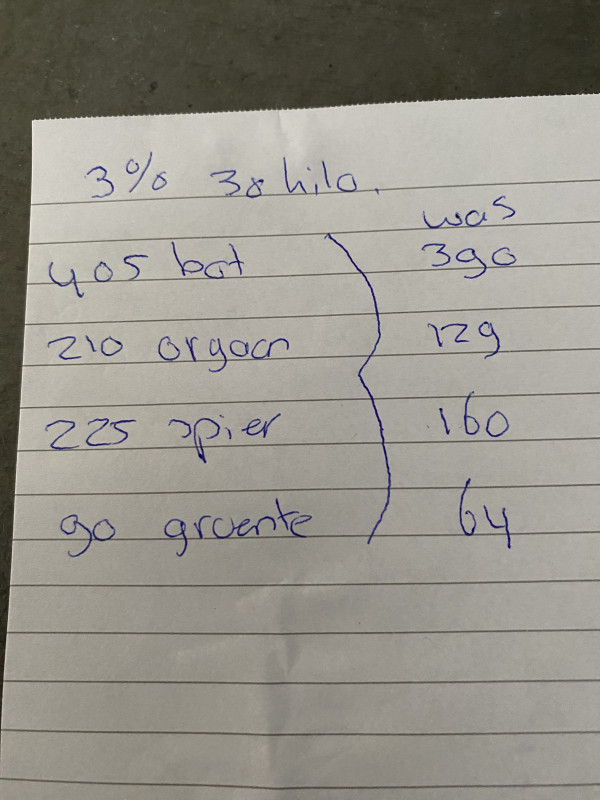 3% 30 kilo.
was
405 bot 390
210 orgaan 129
225 spier 160
90 groente 64